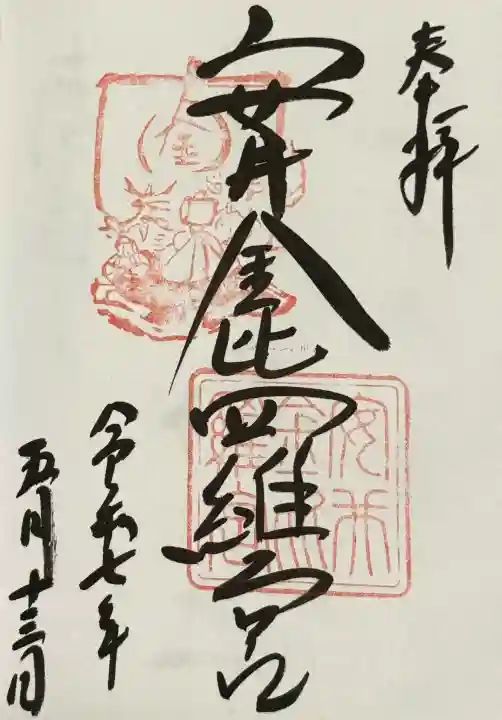 奉拝
安井金比羅宮
令和七年
五月十三日